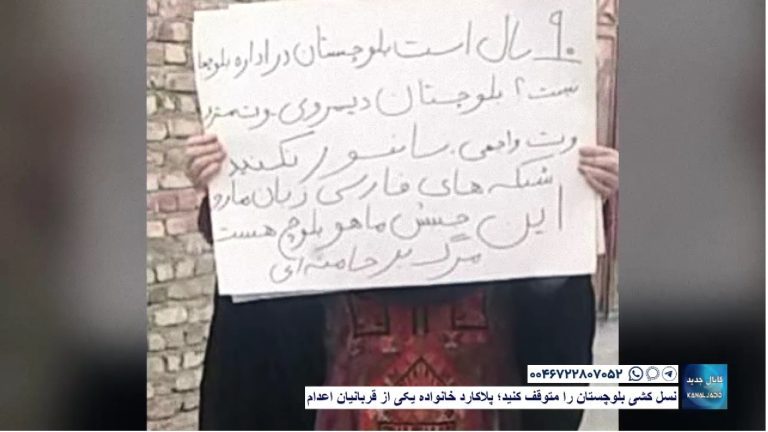 ۹۰ سال است بلوچستان در اداره بلوچها
نیست؟ بلوچستان دیمروی
وت واجهی. سانسور نکنید
شبکه های فارسی زبان مارو
این جنبش ما هو بلوچ هست
مرگ بر خامنه‌ای
۰۰۴۶۷۲۲۸۰۷۰۵۲
نسل کشی بلوچستان را متوقف کنید؛ پلاکارد خانواده یکی از قربانیان اعدام
کانال جدید
KANALJADID